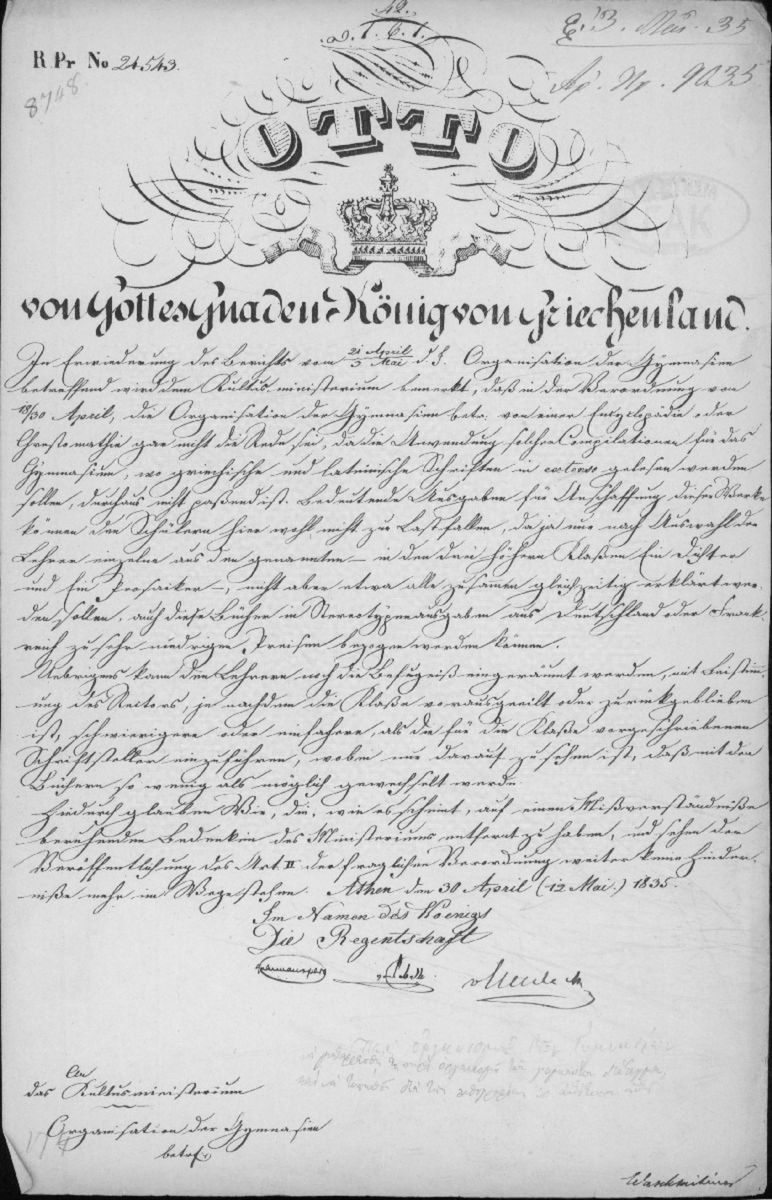 42.
R Pr No 21543.
8748
E. 13. Mai. 35
Ap. Np. 9035
OTTO
von Gottes Gnaden König von Griechenland.
In Erwiederung des Berichts vom 21 April / 3 Mai d. J. Organisation der Gymnasien
betreffend wird dem Kultusministerium bemerkt, daß in der Verordnung von
18/30 April, die Organisation der Gymnasien betr. von einer Encyclopädie oder
Chrestomathie gar nicht die Rede sei, da die Anwendung solcher Compilationen für das
Gymnasium, wo griechische und lateinische Schriften in extenso gelesen werden
sollen, durchaus nicht paßend ist. Bedeutende Ausgaben für Anschaffung dieser Werke
können den Schülern hier wohl nicht zur Last fallen, da ja nur nach Auswahl der
Lehrer einzelne aus den genannten – in den drei höhern Klaßen Ein Dichter
und Ein Prosaiker –, nicht aber etwa alle zusammen gleichzeitig erklärt wer-
den sollen, auch diese Bücher in Stereotypenausgaben aus Deutschland oder Frank-
reich zu sehr niedrigen Preisen bezogen werden können.
Uebrigens kann den Lehrern noch die Befugniß eingeräumt werden, mit Beistimm-
ung des Rectors, je nachdem die Klaße vorausgeeilt oder zurückgeblieben
ist, schwierigere oder einfachere, als die für die Klaße vorgeschriebenen
Schriftsteller einzuführen, wobei nur darauf zu sehen ist, daß mit den
Büchern so wenig als möglich gewechselt werde.
Hiedurch glauben Wir, die, wie es scheint, auf einem Mißverständniße
beruhenden Bedenken des Ministeriums entfernt zu haben, und sehen der
Veröffentlichung des Art. II der fraglichen Verordnung weiter keine Hinder-
niße mehr im Wege stehen. Athen den 30 April (12 Mai.) 1835.
Im Namen des Koenigs
Die Regentschaft
An
das Kultusministerium
Organisation der Gymnasien
betrf.